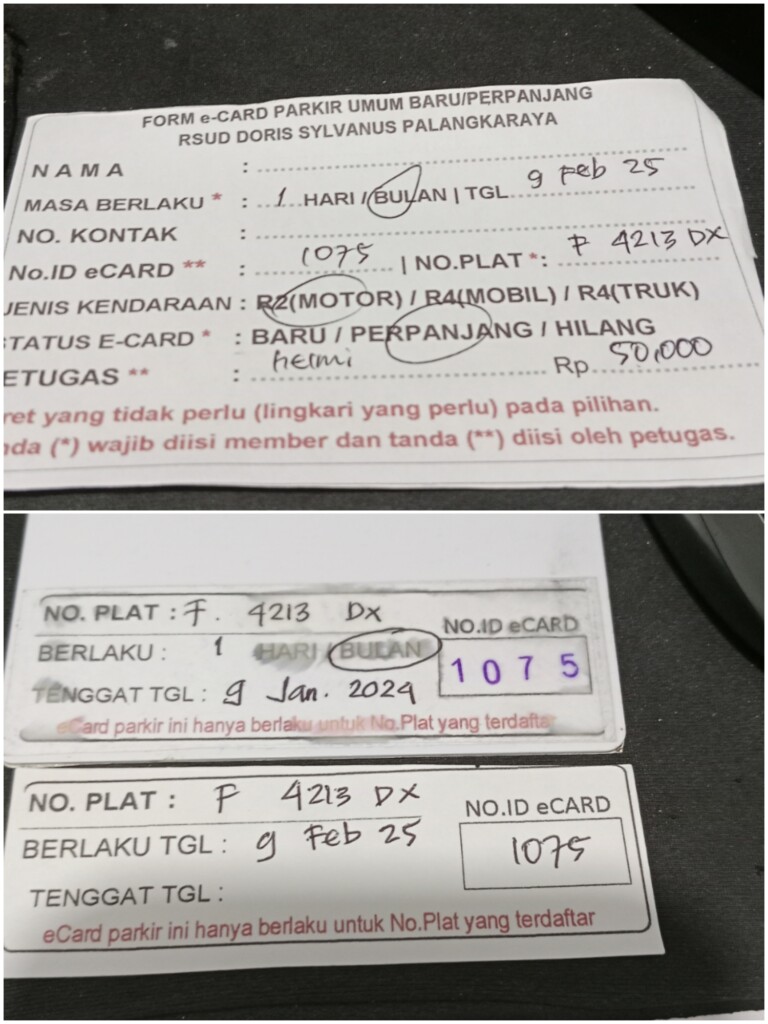 FORM e-CARD PARKIR UMUM BARU/PERPANJANG
RSUD DORIS SYLVANUS PALANGKARAYA
NAMA :
MASA BERLAKU * : 1 HARI / BULAN | TGL 9 Feb 25
NO. KONTAK :
No.ID eCARD ** : 1075 | NO.PLAT *: F 4213 DX
JENIS KENDARAAN : R2(MOTOR) / R4(MOBIL) / R4(TRUK)
TATUS E-CARD * : BARU / PERPANJANG / HILANG
ETUGAS ** : hermi Rp 50,000
ret yang tidak perlu (lingkari yang perlu) pada pilihan.
nda (*) wajib diisi member dan tanda (**) diisi oleh petugas.
NO. PLAT : F. 4213 DX
NO.ID eCARD
BERLAKU : 1 HARI / BULAN
1075
TENGGAT TGL : 9 Jan. 2024
eCard parkir ini hanya berlaku untuk No.Plat yang terdaftar
NO. PLAT : F 4213 DX
NO.ID eCARD
BERLAKU TGL : 9 Feb 25
1075
TENGGAT TGL :
eCard parkir ini hanya berlaku untuk No.Plat yang terdaftar